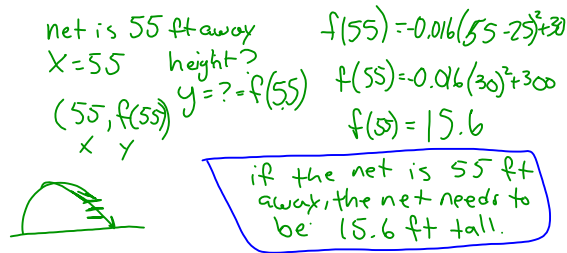 net is 55 ft away
x=55 height?
y=?=f(55)
(55, f(55))
x y
f(55)=-0.016(55-25)²+30
f(55)=-0.016(30)²+300
f(55)=15.6
if the net is 55 ft
away, the net needs to
be 15.6 ft tall.